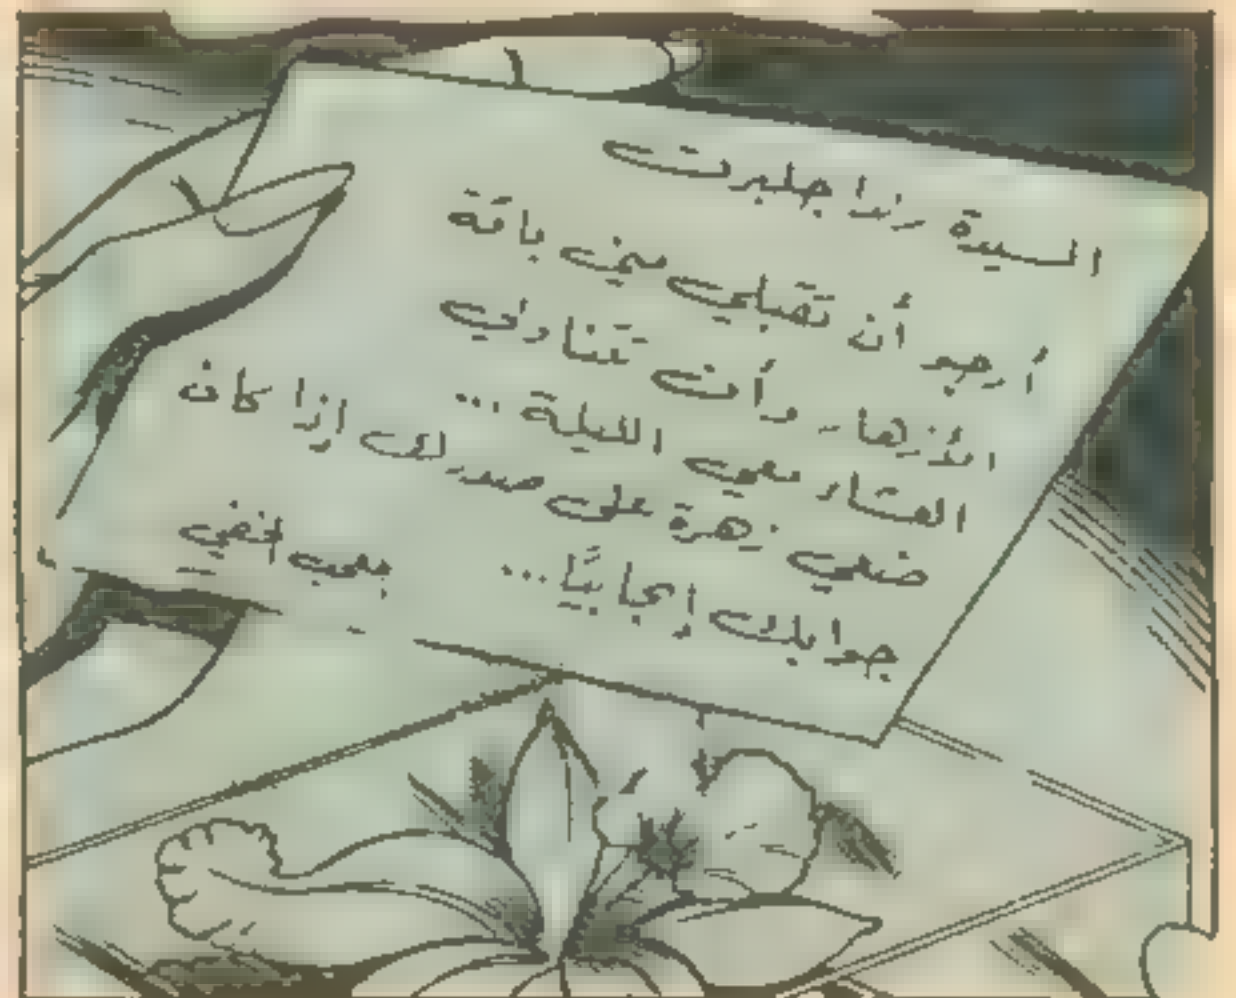 السيدة رندا جلبرت
أرجو أن تقبلي مني باقة
الأزهار وأن تتناولي
العشاء معي الليلة ...
ضعي زهرة على صدرك إذا كان
جوابك إيجابيًا ...
معجب خفي